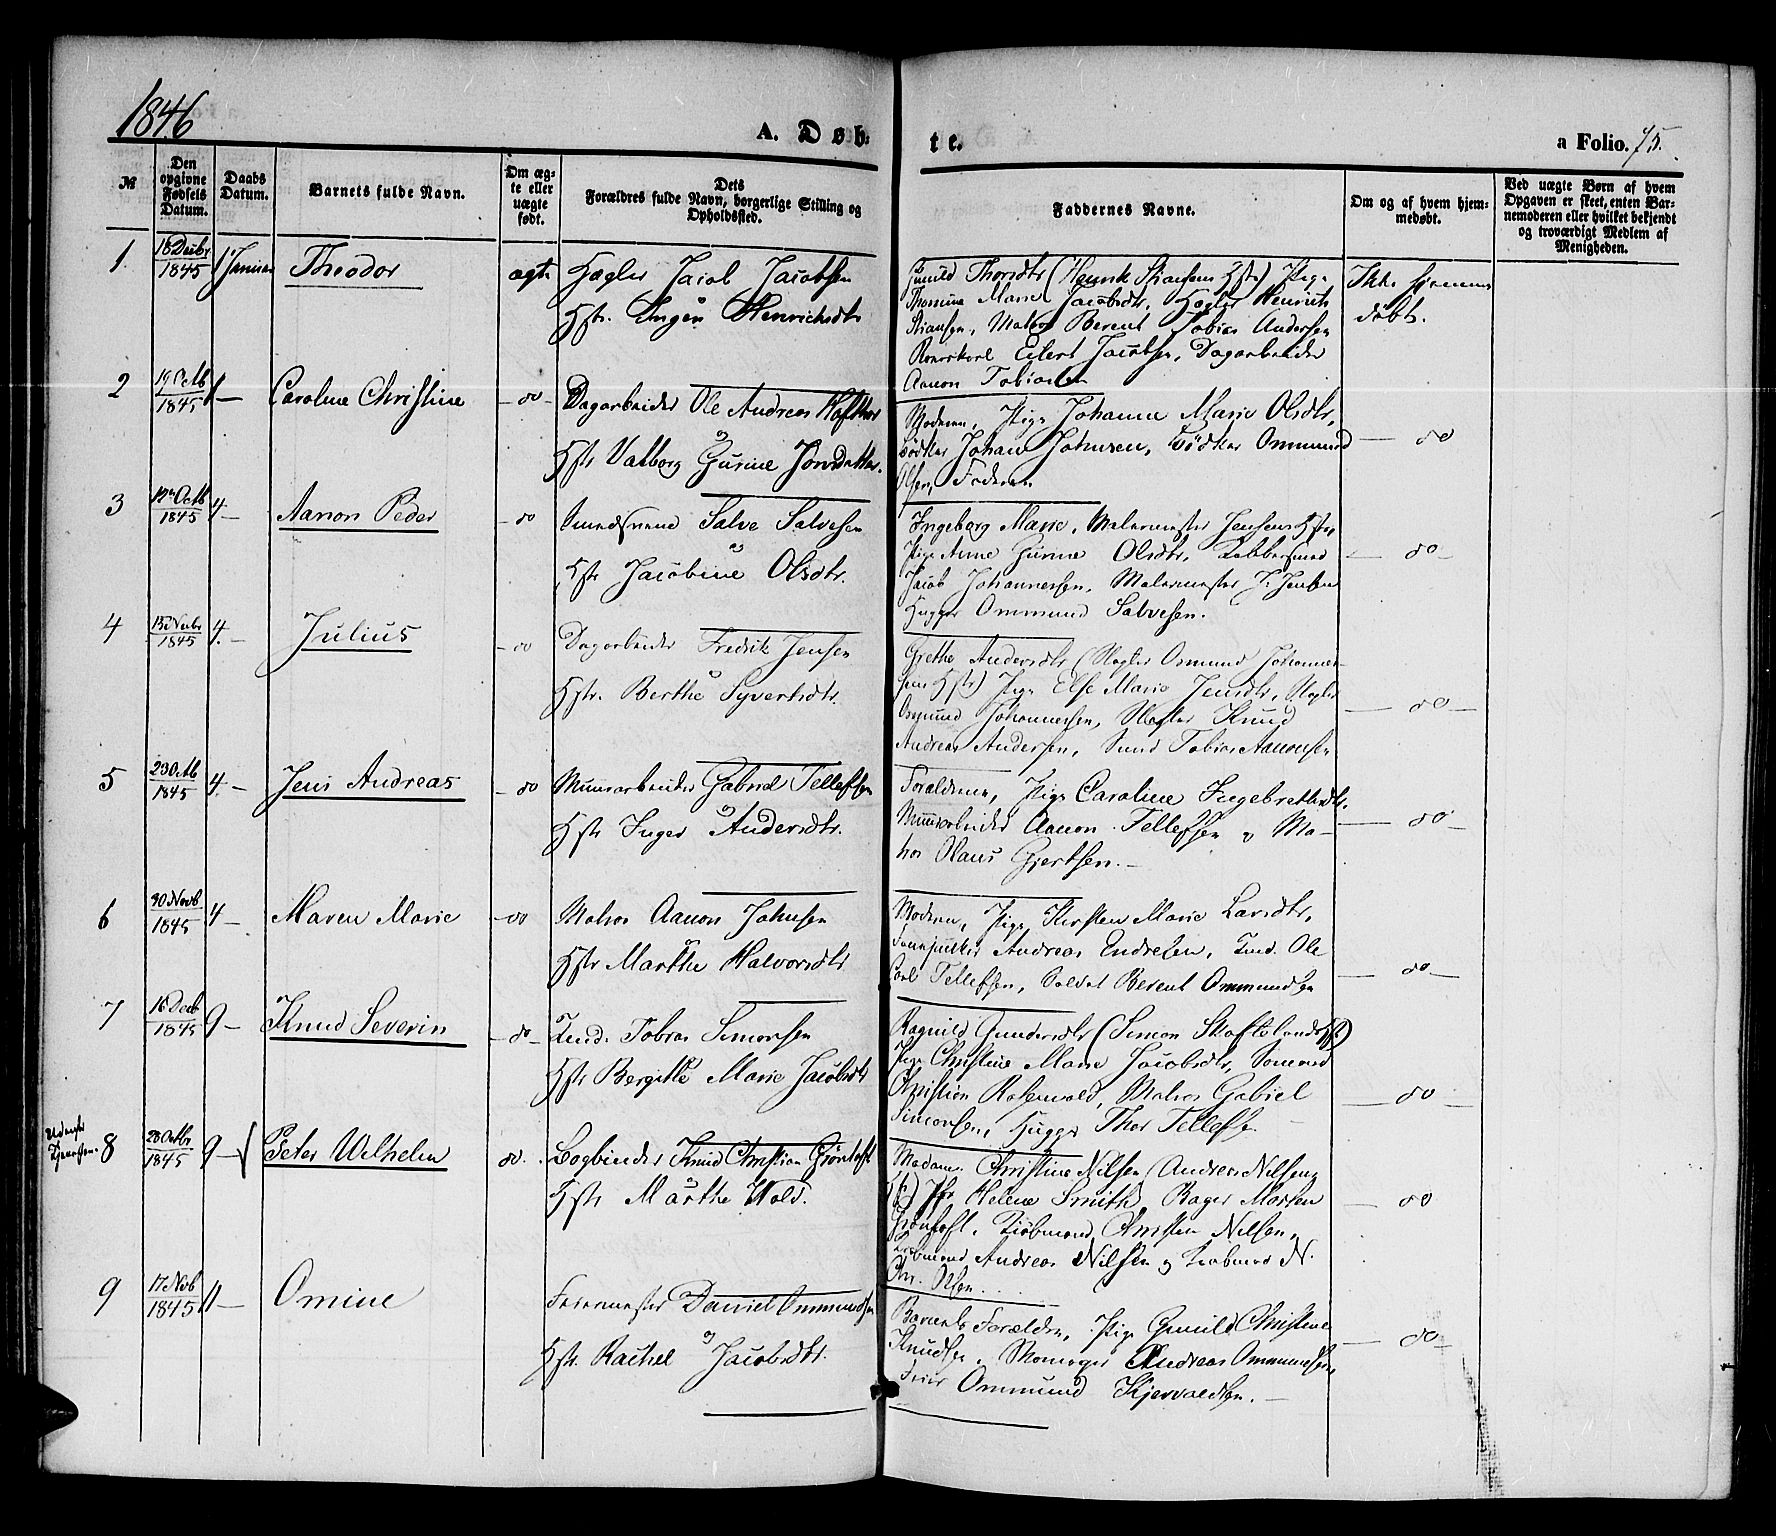 1846
A. Døb-
te.
a Folio. 75.
№
Den opgivne Fødsels Datum.
Daabs Datum.
Barnets fulde Navn.
Om ægte eller uægte født.
Dets Forældres fulde Navn, borgerlige Stilling og Opholdssted.
Faddernes Navne.
Om og af hvem hjemmedøbt.
Ved uægte Børn af hvem Opgaven er skeet, enten Barnemoderen eller hvilket bekjendt og troværdigt Medlem af Menigheden.
1. 18 Decbr 1845 1 Januar Theodor ægte Hægler Jacob Jacobsen
Hstr. Inger Henrichsdtr
Gunild Thorsdtr (Henrik Stiansens Hstr) Pige
Thomine Marie Jacobsdtr, Hægler Henrich
Stiansen, Matros Berent Tobias Andersen
Eilert Jacobsen, Dagarbeider
Aanon Tobiasen
Ikke hjemmedøbt.
2 19 Octb 1845 1 — Caroline Christine — do — Dagarbeider Ole Andreas
Hstr Valborg Gurine Jonsdatter.
Moderen, Pige Johanne Marie Olsdtr,
Bødker Johan Johnsen, Bødker Ommund
Olsen, Faderen
— do
3 12 Octb 1845 4 — Aanon Peder — do Smedsvend Salve Salvesen
Hstr Jacobine Olsdtr.
Ingeborg Marie, Malermester Jensens Hstr,
Pige Anne Gurine Olsdtr, Kobbersmed
Jacob Johannessen, Malermester J. Jensen
Hugger Ommund Salvesen.
— do —
4 15 Novbr 1845 4. — Julius — do Dagarbeider Fredrik Jensen
Hstr. Berthe Syvertsdtr.
Grethe Andersdtr (Osmund Johannessens Hstr) Pige Else Marie Jensdtr,
Osmund Johannessen, Knud
Andreas Andersen, Svend Tobias Aanonsen
— do —
5 23 Octb 1845 4. — Jens Andreas — do Muurarbeider Gabriel Tellefsen
Hstr Inger Andersdtr.
Forældrene, Pige Caroline Ingebretsdtr.
Muurarbeider Aanon Tellefsen og Ma-
tros Olaus Gjertsen. —
— do —
6 30 Novb 1845 4 — Maren Marie — do Matros Aanon Johnsen
Hstr Marthe Halvorsdtr
Moderen, Pige Kirsten Marie Larsdtr,
Andreas Endresen, Ole
Carl Tellefsen, Soldat Berent Ommundsen
— do —
7 16 Decb 1845 9 — Knud Severin — do — Tobias Simonsen
Hstr Bergitte Marie Jacobsdtr
Ragnild Gundersdtr (Simon Hstr)
Pige Christine Marie Jacobsdtr, Sømand
Christian Rosenvold, Matros Gabriel
Simonsen, Hugger Thor Tellefsen
— do —
8 28 Octbr 1845 9 — Peter Wilhelm do. Bogbinder Knud Christian Grøntoft
Hstr Marthe Wold.
Madam Christine Nilsen (Andreas Nilsens
Hstr) Helene Smith, Bager Morten
Grøntoft, Kiøbmand Christen Nilsen,
Kiøbmand Andreas Nilsen og Kiøbmand N.
Chr. Olsen
— do
9 17 Novb 1845 11 — Omine Feiermester Daniel Ommundsen
Hstr. Rachel Jacobsdtr.
Barnets Forældre, Pige Gunild Christine
Knudsen, Andreas Ommundsen,
Feier Ommund Kjervaldsen. —
— do —